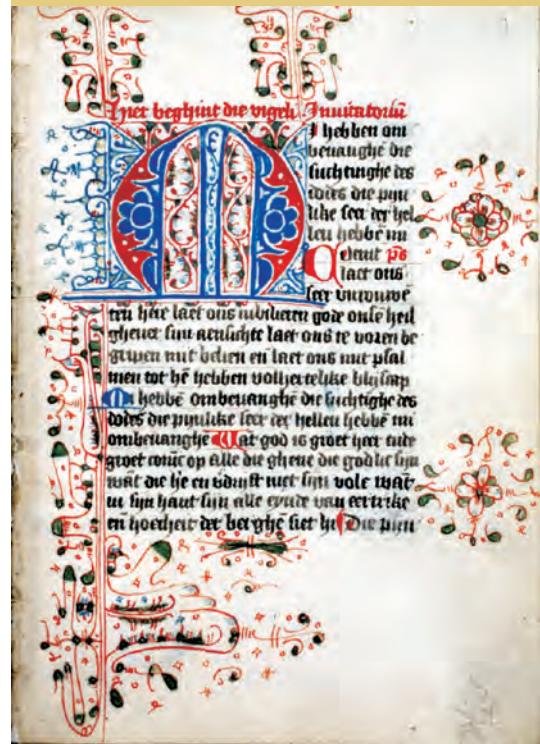 Hier beghint die vigeli Inuitatoriū
MI hebben om
beuanghe die
suchtinghe des
dodes die pijn
like seer der hel
len hebbē mi
Comt ps
laet ons
seer
ten here laet ons iubilieren gode onsē heil
gheuet sijn aensichte laet ons te voren be
gripen mit belien en laet ons mit psal
men tot hē hebben volhertelijke blijscap
Mi hebbē ombeuanghe die suchtighe des
dodes die pijnlike seer der hellen hebbē mi
ombeuanghe Wat god is groet heer ende
groet coninc op alle die ghene die godlic sijn
wāt die he en verdrijft niet sijn volc wāt
in sijn hant sijn alle eynde van eertrike
en hoecheit der berghe siet hi Die pijn